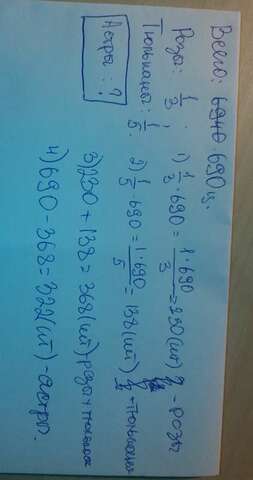 Всего: 690 ц.
Розы: 1/3
Тюльпаны: 1/5
Астры: ?
1) 1/3 · 690 = 1·690/3 = 230 (шт) - розы
2) 1/5 · 690 = 1·690/5 = 138 (шт) - тюльпаны
3) 230 + 138 = 368 (шт) розы + тюльпаны
4) 690 - 368 = 322 (шт) - астры.